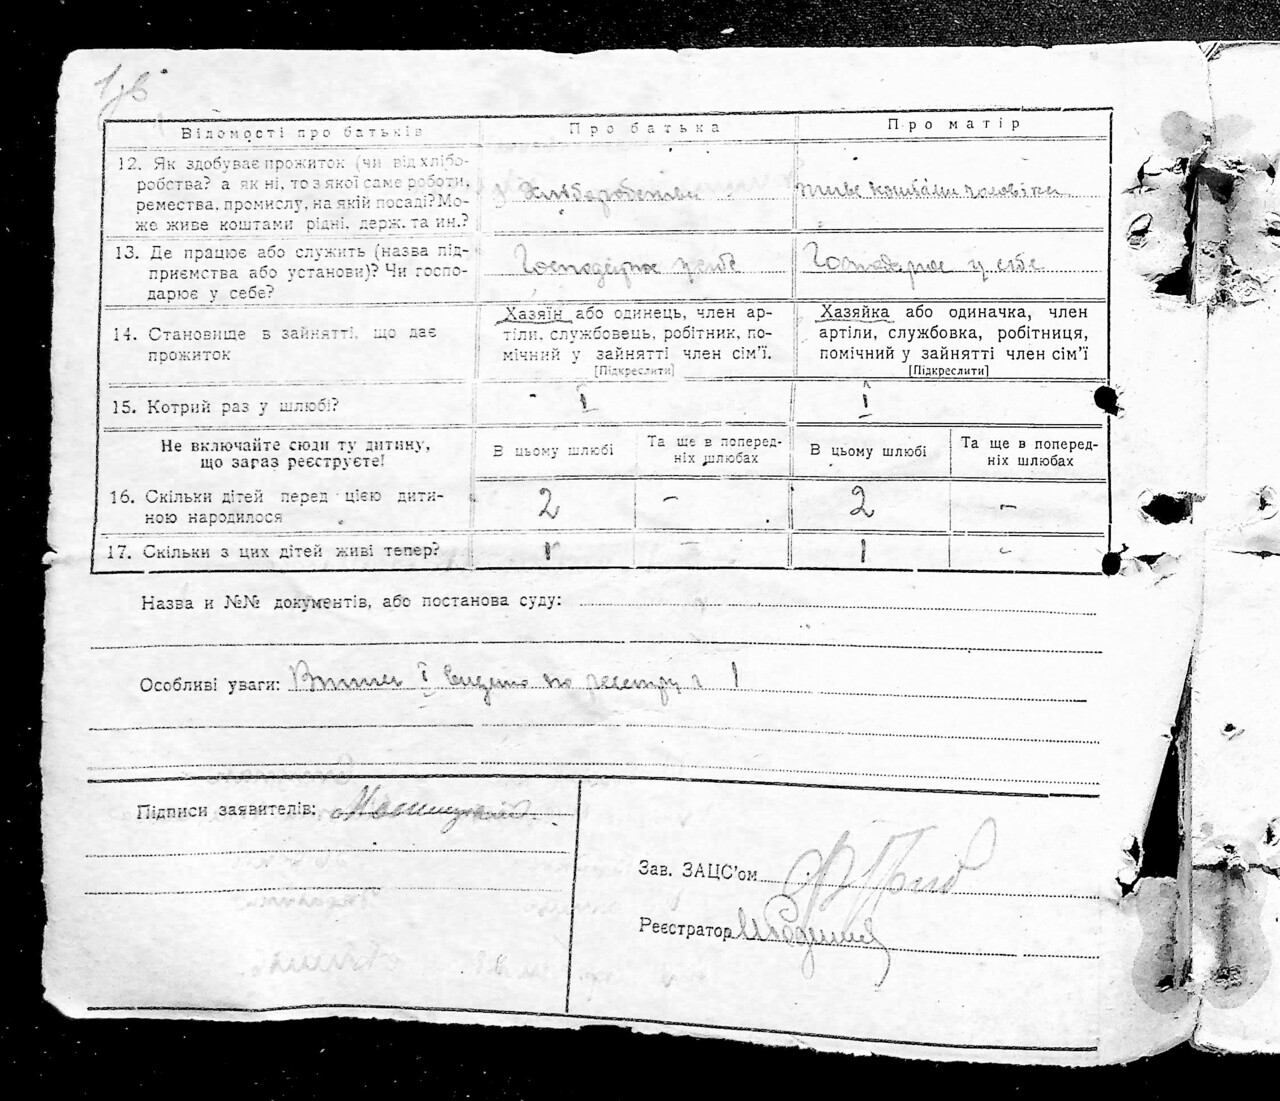 Відомості про батьків
Про батька
Про матір
12. Як здобуває прожиток (чи від хлібо-
робства? а як ні, то з якої саме роботи,
ремества, промислу, на якій посаді? Мо-
же живе коштами рідні, держ. та ин.?
З хліборобства
живе коштами чоловіка
13. Де працює або служить (назва під-
приємства або установи)? Чи госпо-
дарює у себе?
Господарює у себе
Господарює у себе
14. Становище в зайнятті, що дає
прожиток
Хазяїн або одинець, член ар-
тіли, службовець, робітник, по-
мічний у зайнятті член сім'ї.
[Підкреслити]
Хазяйка або одиначка, член
артіли, службовка, робітниця,
помічний у зайнятті член сім'ї
[Підкреслити]
15. Котрий раз у шлюбі?
І
І
Не включайте сюди ту дитину,
що зараз реєструєте!
В цьому шлюбі
Та ще в поперед-
ніх шлюбах
В цьому шлюбі
Та ще в поперед-
ніх шлюбах
16. Скільки дітей перед цією дити-
ною народилося
2
–
2
–
17. Скільки з цих дітей живі тепер?
1
–
1
–
Назва и №№ документів, або постанова суду:
Особливі уваги: І видано по реєстру 1
Підписи заявителів:
Зав. ЗАЦС'ом
Реєстратор